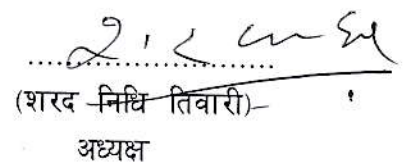 (शरद निधि तिवारी)
अध्यक्ष